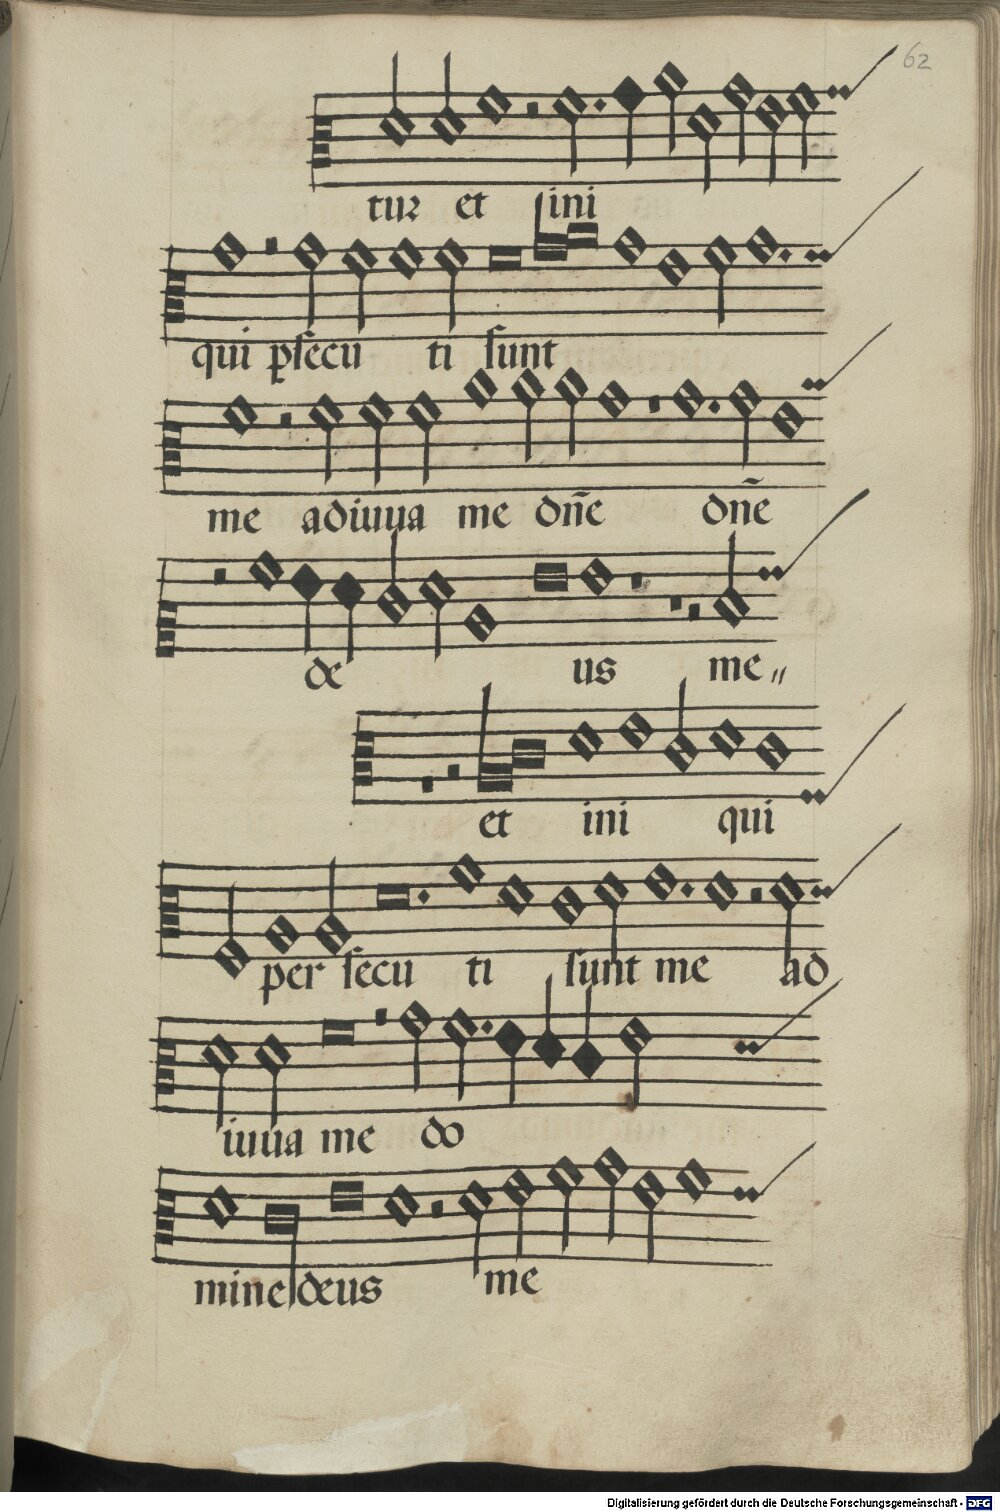 62
tur et ſini
qui pſecu ti ſunt
me adiuua me dn̄e dn̄e
de us me〃
et ini qui
per ſecu ti ſunt me ad
iuua me do
mine deus me
Digitalisierung gefördert durch die Deutsche Forschungsgemeinschaft - DFG